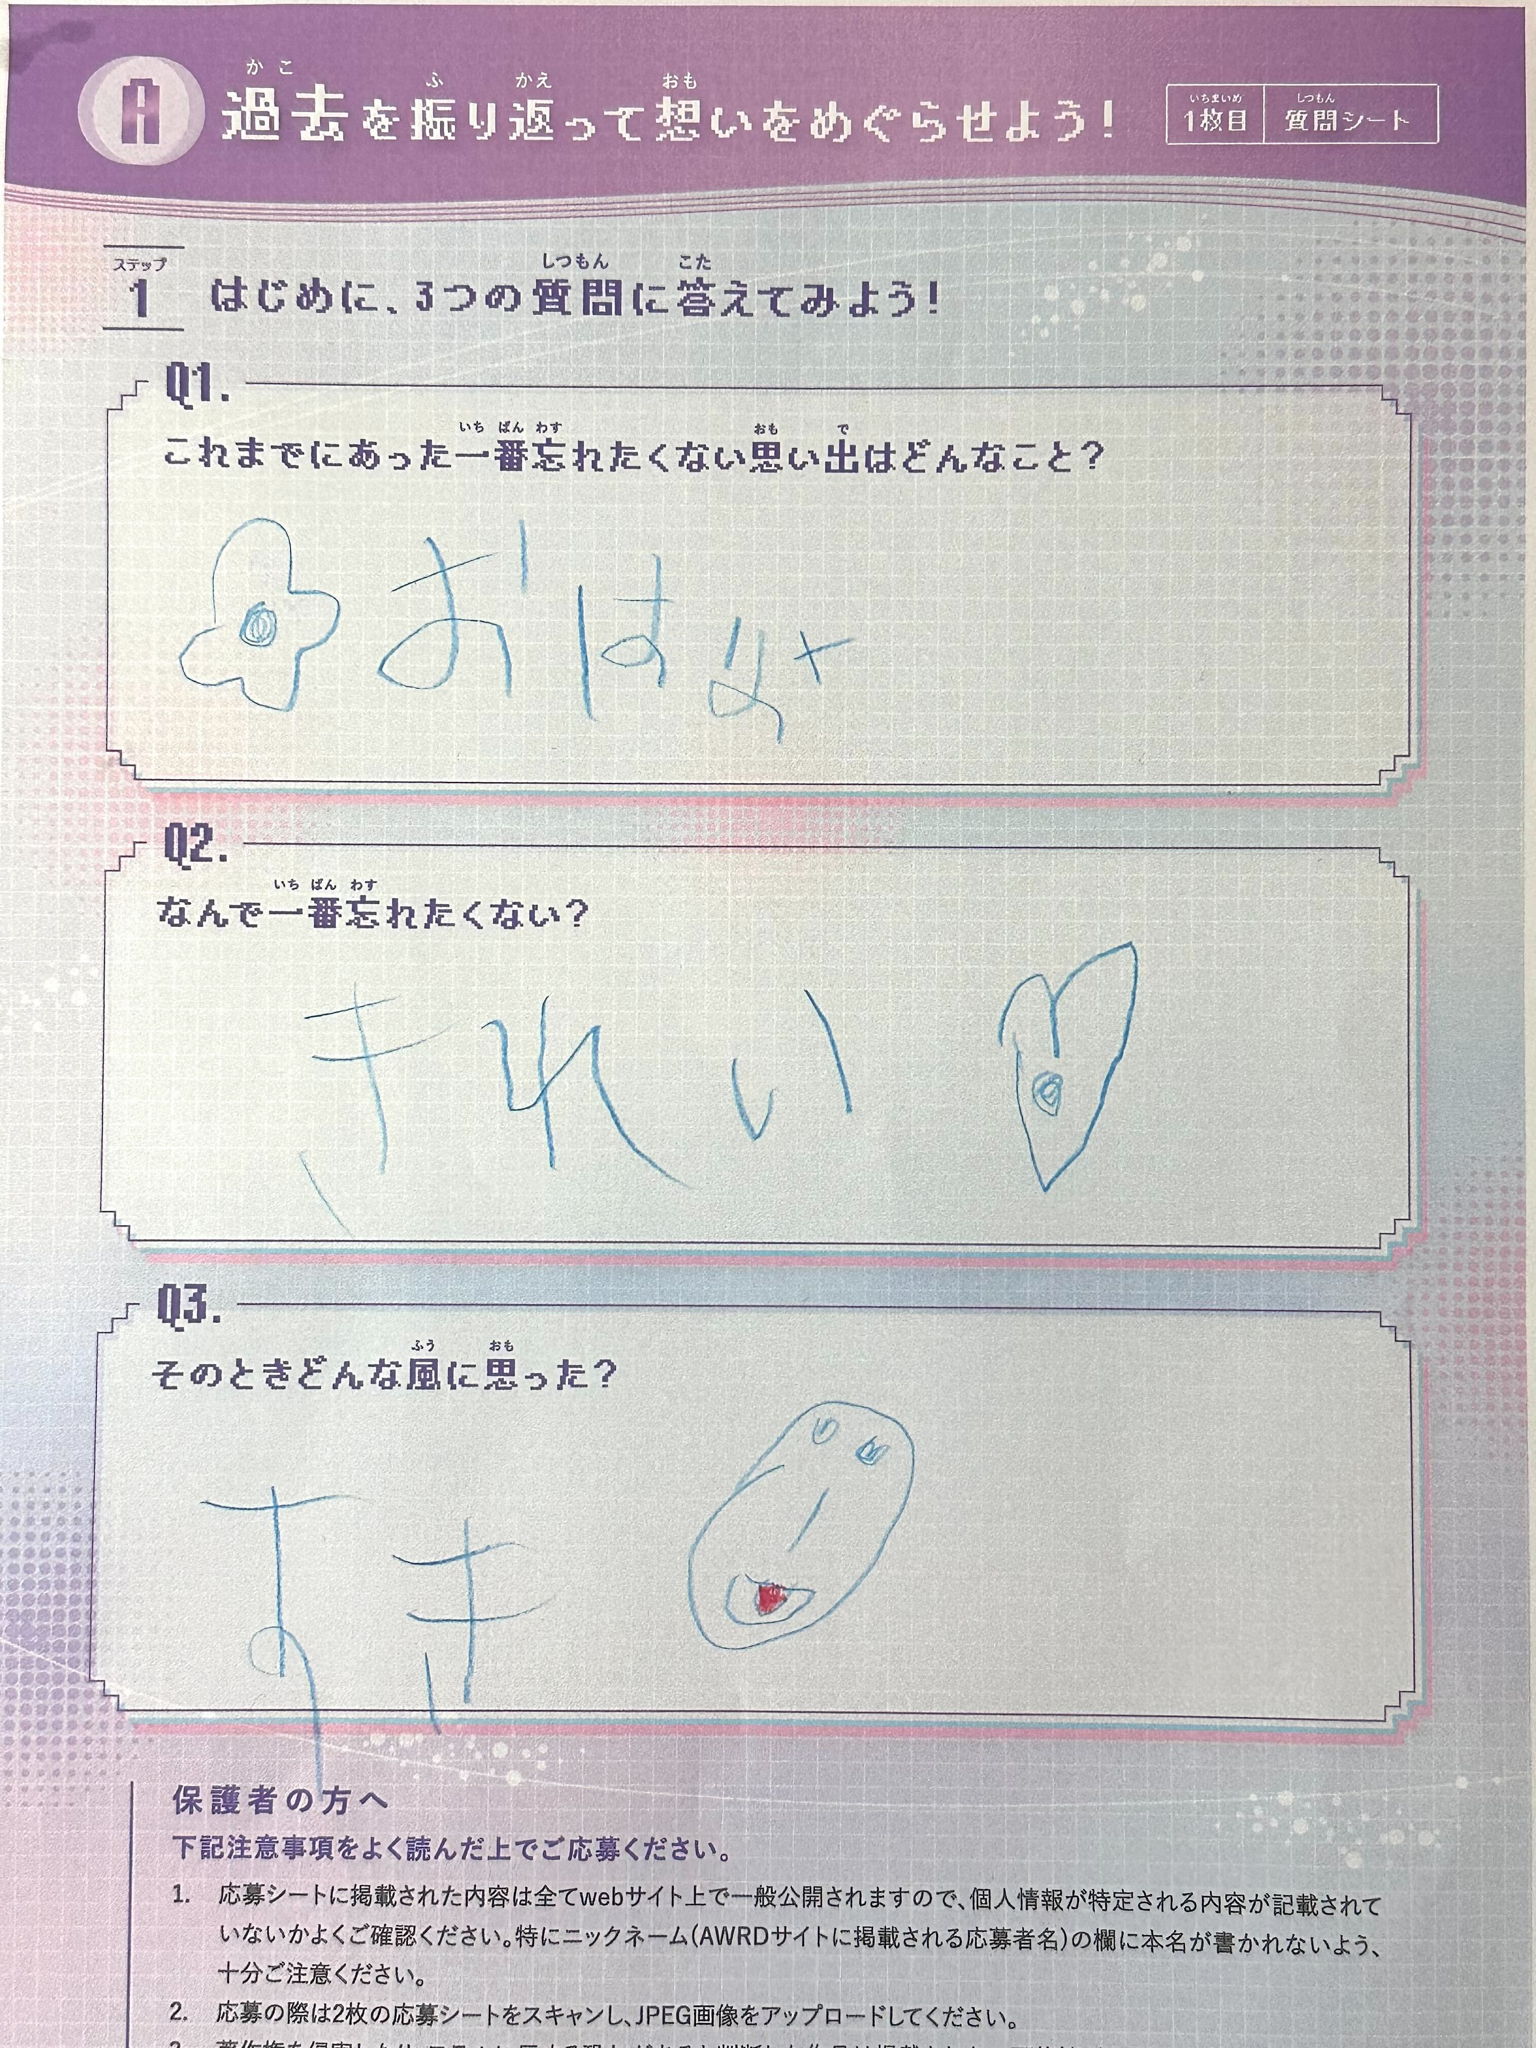 A
かこ ふ かえ おも
過去を振り返って想いをめぐらせよう！
いちまいめ しつもん
1枚目 質問シート
ステップ
1
しつもん こた
はじめに、3つの質問に答えてみよう！
Q1.
いち ばん わす おも で
これまでにあった一番忘れたくない思い出はどんなこと？
おはな
Q2.
いち ばん わす
なんで一番忘れたくない？
きれい
Q3.
ふう おも
そのときどんな風に思った？
すき
保護者の方へ
下記注意事項をよく読んだ上でご応募ください。
1. 応募シートに掲載された内容は全てwebサイト上で一般公開されますので、個人情報が特定される内容が記載されて
いないかよくご確認ください。特にニックネーム(AWRDサイトに掲載される応募者名)の欄に本名が書かれないよう、
十分ご注意ください。
2. 応募の際は2枚の応募シートをスキャンし、JPEG画像をアップロードしてください。